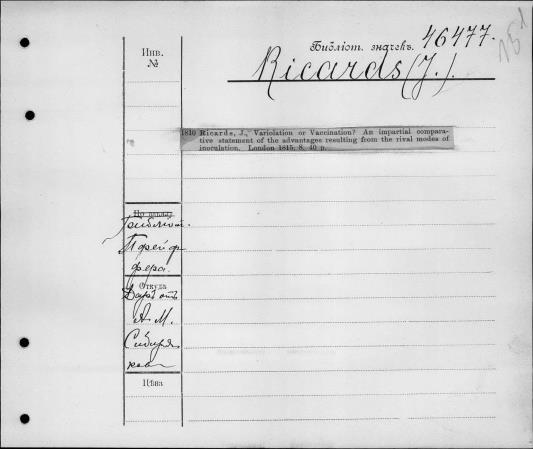 Библіот. значекъ. 46477.
Инв.
№
Ricards (J.).
1810 Ricards, J., Variolation or Vaccination? An impartial compara-
tive statement of the advantages resulting from the rival modes of
inoculation. London 1815. 8. 40 p.
Библіот.
Пфейф-
фера.
Откуда
Даръ отъ
А. М.
Сибиря-
кова
Цѣна